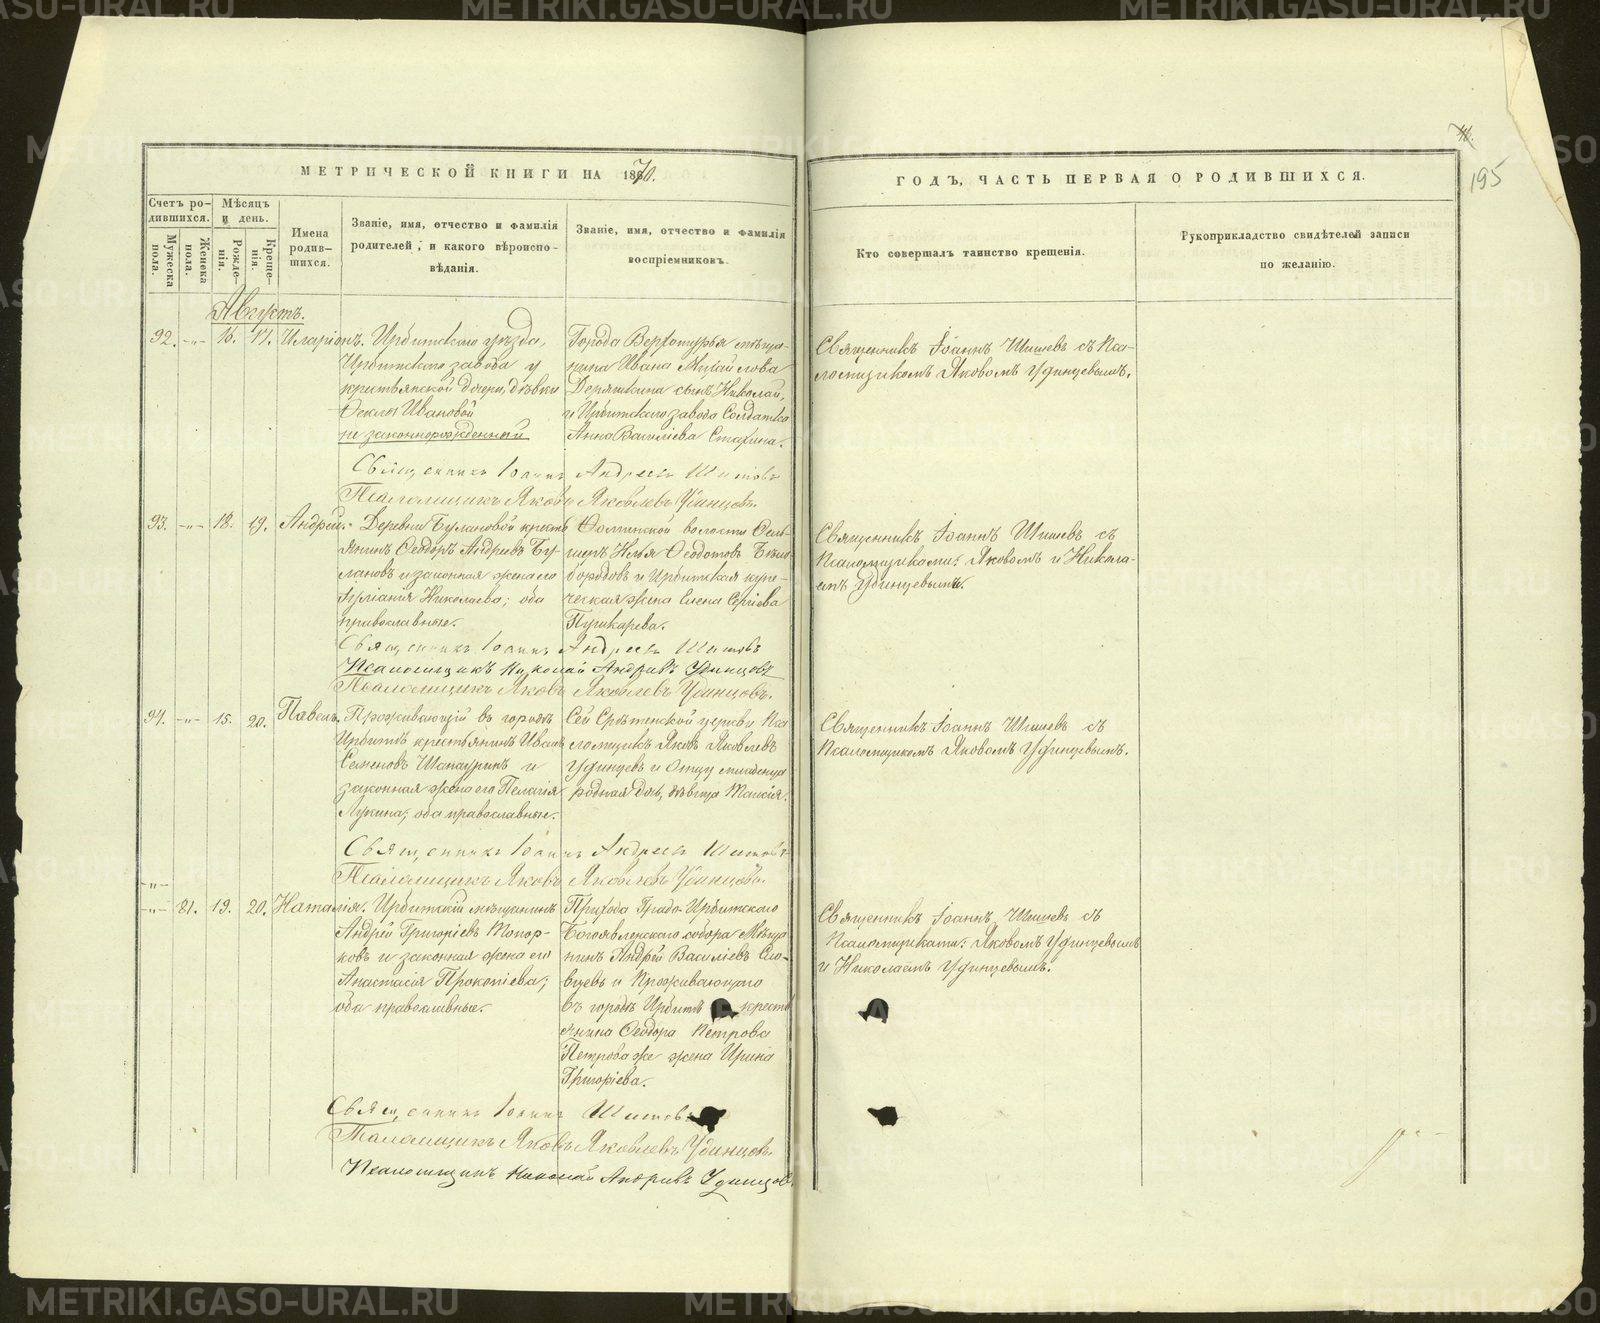 METRIKI.GASO-URAL.RU
195
МЕТРИЧЕСКОЙ КНИГИ НА 1870.
ГОДЪ, ЧАСТЬ ПЕРВАЯ О РОДИВШИХСЯ.
Счетъ ро-
дившихся.
Мѣсяцъ
и день.
Мужеска
пола.
Женска
пола.
Рожде-
нія.
Креще-
нія.
Имена
родив-
шихся.
Званіе, имя, отчество и фамилія
родителей, и какого вѣроиспо-
вѣданія.
Званіе, имя, отчество и фамилія
воспріемниковъ.
Кто совершалъ таинство крещенія.
Рукоприкладство свидѣтелей записи
по желанію.
Августъ.
92. -"- 16. 17. Иларіонъ.
Ирбитскаго уѣзда,
Ирбитскаго завода у
крестьянской дочери, дѣвки
Феклы Ивановой
незаконнорожденный
Города Верхотурья мѣща-
нина Ивана Михайлова
сынъ Николай,
и Ирбитскаго завода Солдатка
Анна Василіева
Священникъ Іоаннъ Шишевъ съ Пса-
ломщикомъ Яковомъ Удинцевымъ.
Священникъ Іоаннъ Андреевъ Шишевъ
Псаломщикъ Яковъ Яковлевъ Удинцовъ.
93. -"- 18. 19. Андрей.
Деревни Булановой кресть
янинъ Ѳеодоръ Андреевъ Бу-
лановъ и законная жена его
Николаева; оба
православные.
волости
Илья Ѳеодотовъ Бѣло-
бородовъ и Ирбитская купе-
ческая жена Елена Сергіева
Пушкарева.
Священникъ Іоаннъ Шишевъ съ
Псаломщиками: Яковомъ и Никола-
емъ Удинцевыми.
Священникъ Іоаннъ Андреевъ Шишевъ
Псаломщикъ Николай Андреевъ Удинцовъ
Псаломщикъ Яковъ Яковлевъ Удинцовъ.
94. -"- 15. 20. Павелъ.
Проживающій въ городѣ
Ирбитѣ крестьянинъ Иванъ
Семеновъ и
законная жена его Пелагія
Лукина; оба православные.
Сей Срѣтенской церкви Пса
ломщикъ Яковъ Яковлевъ
Удинцевъ и Отцу младенца
родная дочь, дѣвица Таисія.
Священникъ Іоаннъ Шишевъ съ
Псаломщикомъ Яковомъ Удинцевымъ.
Священникъ Іоаннъ Андреевъ Шишевъ
Псаломщикъ Яковъ Яковлевъ Удинцовъ.
-"-
-"- 81. 19. 20. Наталія.
Ирбитскій мѣщанинъ
Андрей Григоріевъ Топор-
ковъ и законная жена его
Анастасія Прокопіева;
оба православные.
Прихода Градо-Ирбитскаго
Богоявленскаго собора Мѣща
нинъ Андрей Василіевъ Сло-
вцевъ и Проживающаго
въ городѣ Ирбитѣ кресть
янина Ѳеодора Петрова
Петрова же жена Ирина
Григоріева.
Священникъ Іоаннъ Шишевъ съ
Псаломщиками: Яковомъ Удинцевымъ
и Николаемъ Удинцевымъ.
Священникъ Іоаннъ Шишевъ
Псаломщикъ Яковъ Яковлевъ Удинцовъ.
Псаломщикъ Николай Андреевъ Удинцовъ.